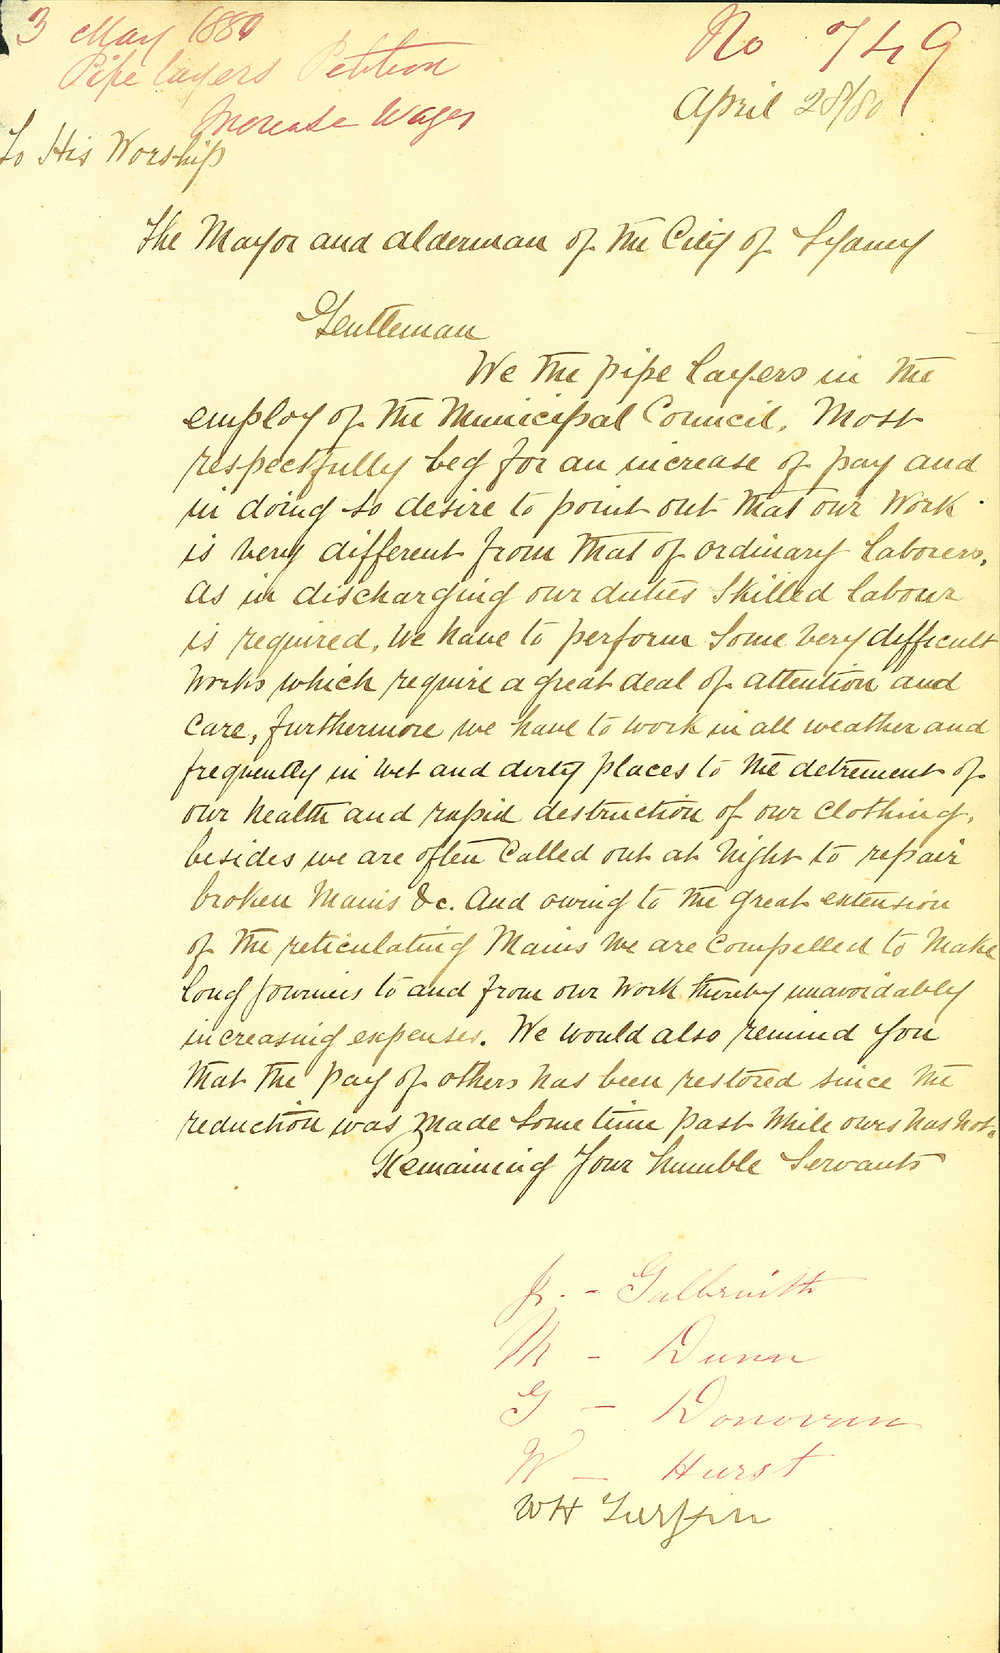 3 May 1880
Pipe layers Petition
Increase Wages
No 749
April 28/80
To His Worship
The Mayor and alderman of the City of Sydney
Gentleman
We the pipe layers in the
employ of the Municipal Council, Most
respectfully beg for an increase of pay and
in doing so desire to point out that our Work
is very different from that of ordinary laborers,
as in discharging our duties Skilled labour
is required, We have to perform Some Very difficult
Works which require a great deal of attention and
Care, furthermore we have to work in all weather and
frequently in wet and dirty places to the detrement of
our health and rapid destruction of our Clothing,
besides we are often Called out at Night to repair
broken Mains &c. And owing to the great extension
of the reticulating Mains We are Compelled to Make
long journies to and from our Work thereby unavoidably
increasing expenses. We would also remind you
that the pay of others has been restored since the
reduction was made Some time past While ours has not.
Remaining Your humble Servants
J. - Galbraith
M - Dunn
G - Donovan
W - Hurst
WH